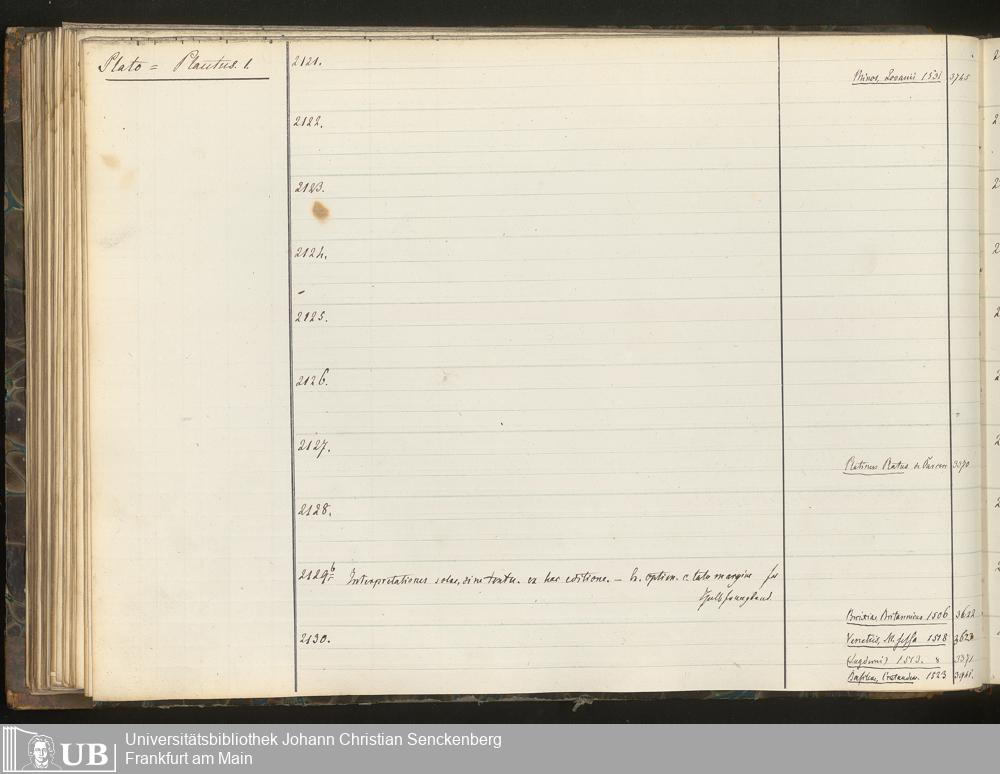 Plato = Plautus. 1.
2121.
Minos, Lovanii 1531 3745
2122.
2123.
2124.
2125.
2126.
2127.
3370
2128.
2129b Interpretationes solae, sine textu. ex hac editione. — h. optim. c. lato margine
2130.
Brixiae, Britannicus 1506 3622
Venetiis, M. Sessa 1518 3623
(Lugduni) 1513. 8 3371
Basileae, Cratander. 1523
Universitätsbibliothek Johann Christian Senckenberg
Frankfurt am Main
UB